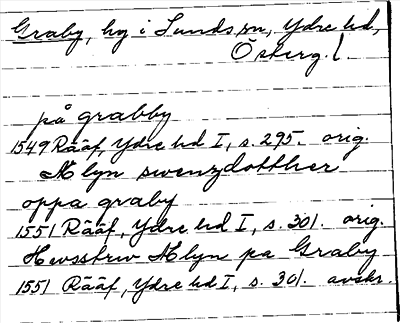 Graby, by i Sunds sn, Ydre hd,
Österg. l.
på grabby
1549 Rääf, Ydre hd I, s. 295. orig.
Elyn swenzdotther
oppa graby
1551 Rääf, Ydre hd I, s. 301. orig.
Hwsstrw Elyn pa Graby
1551 Rääf, Ydre hd I, s. 301. avskr.